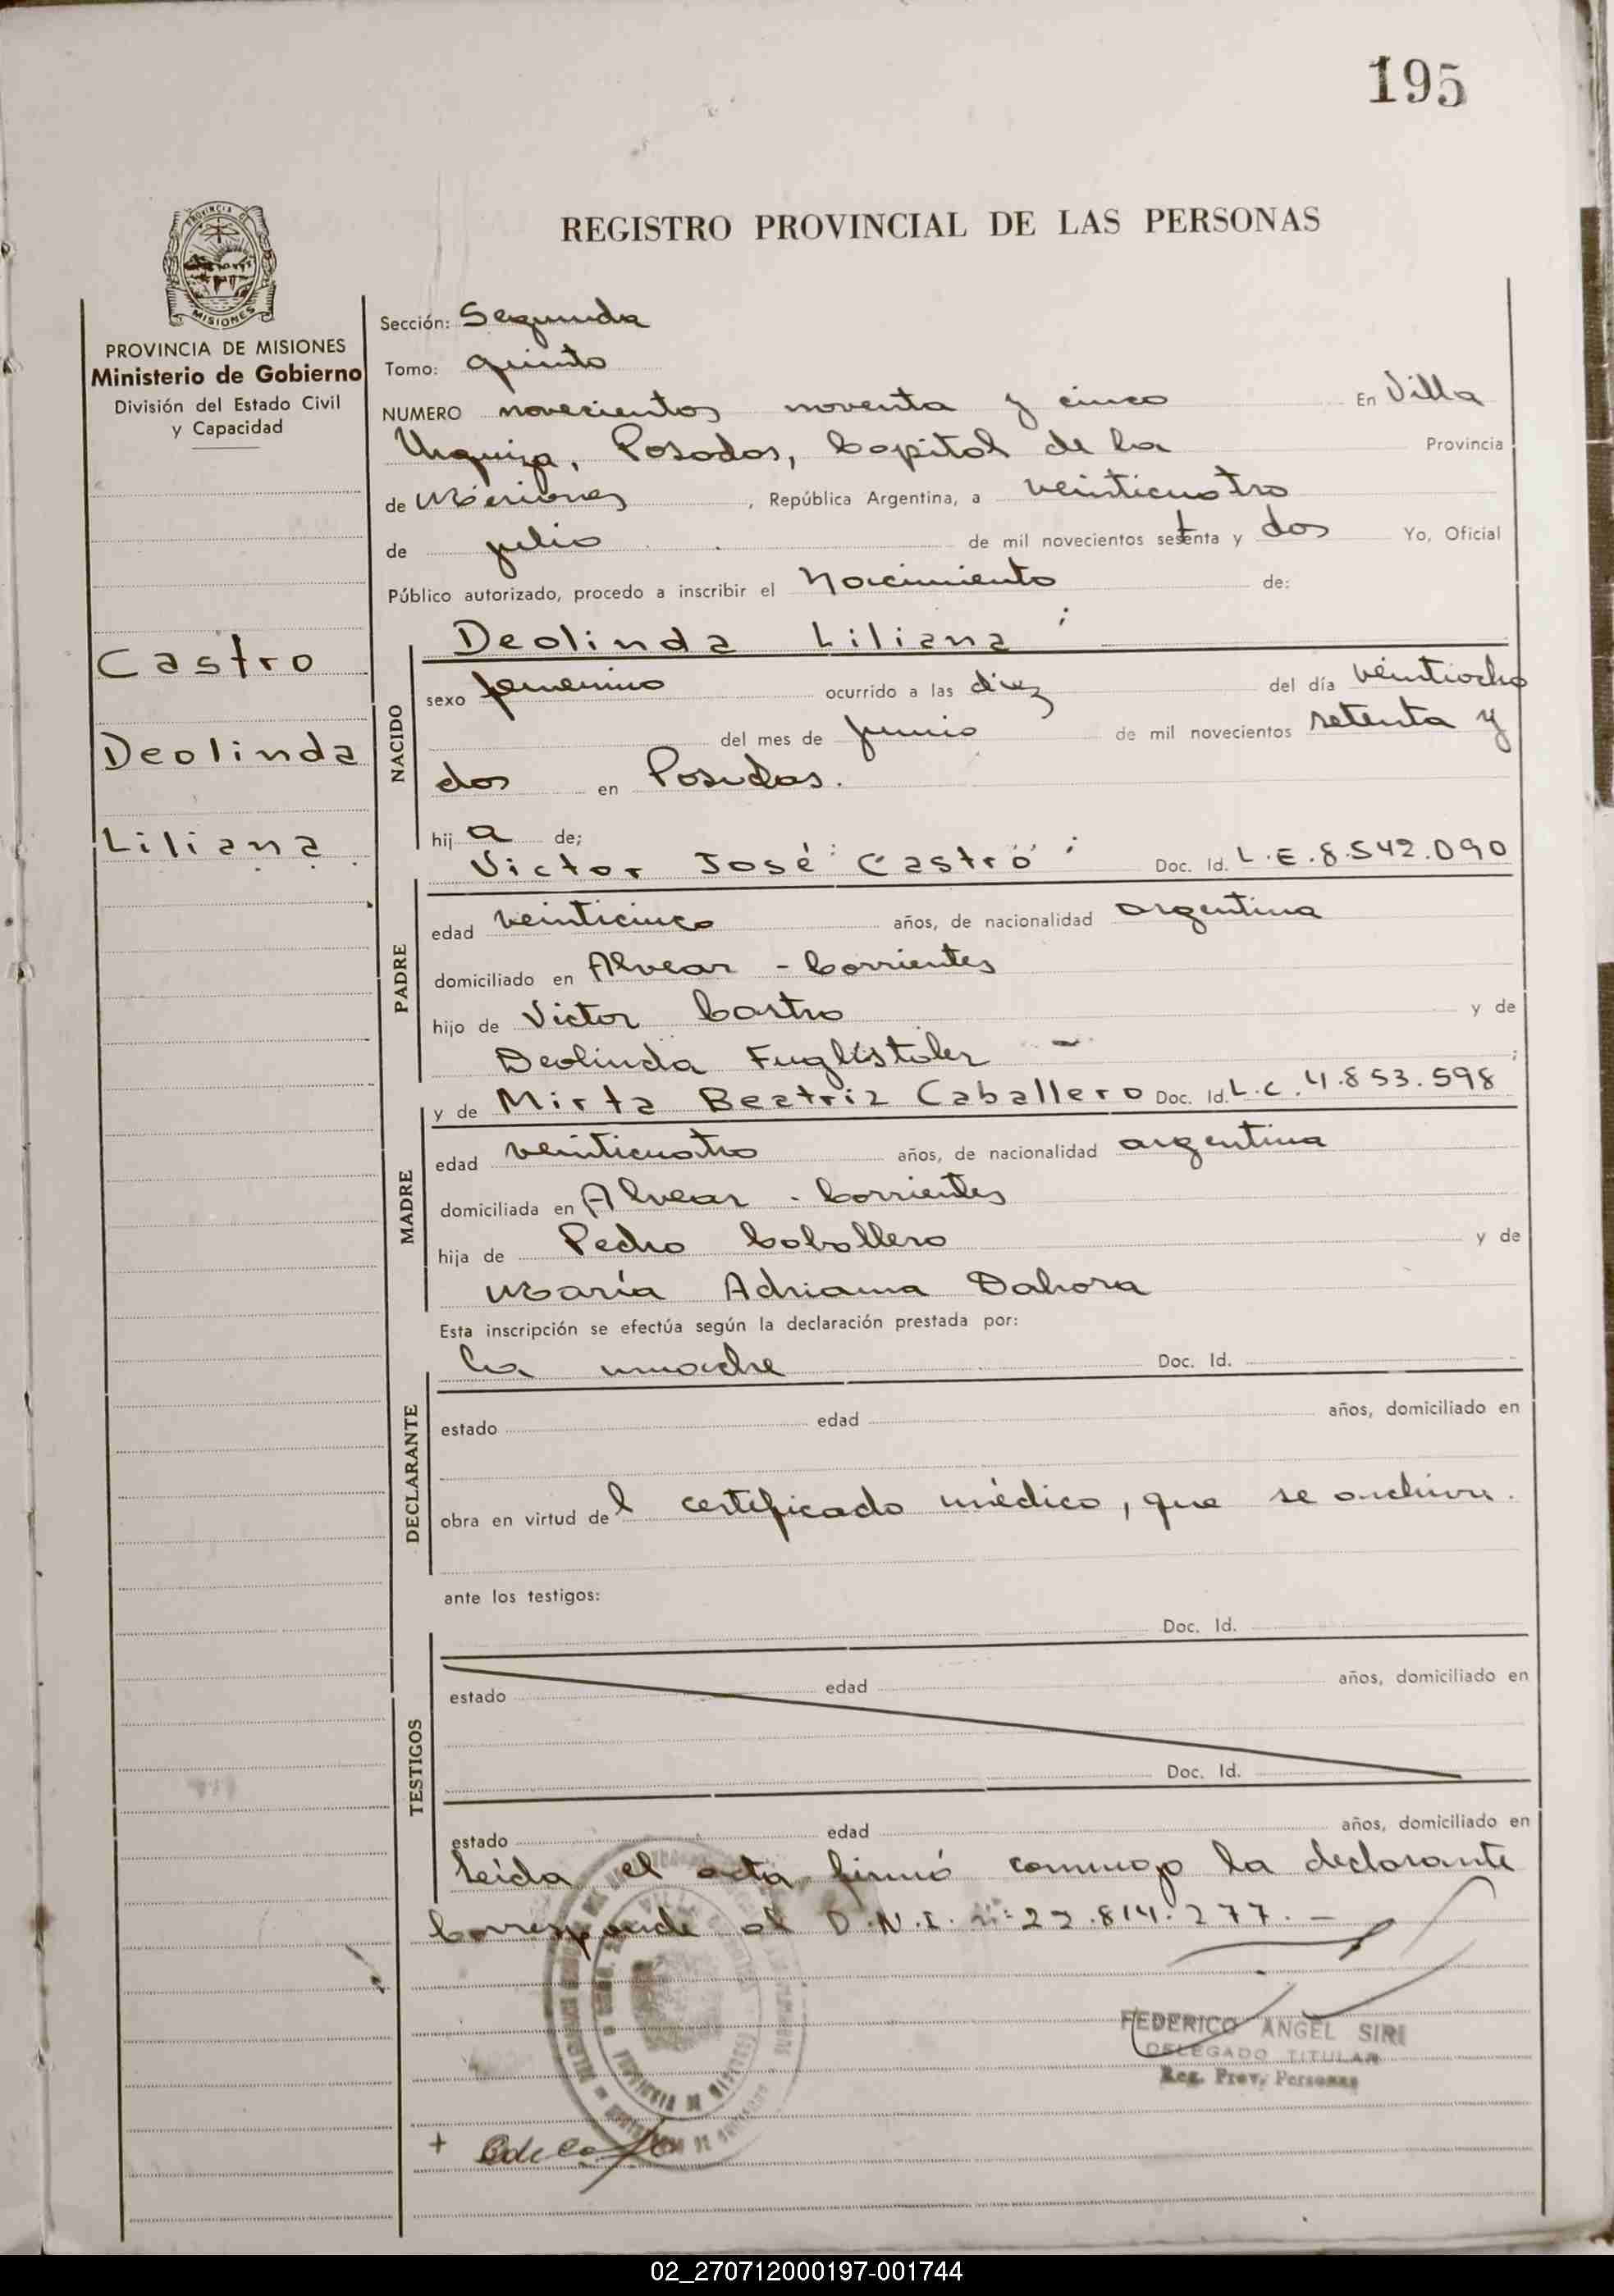 195
REGISTRO PROVINCIAL DE LAS PERSONAS
PROVINCIA DE MISIONES
Ministerio de Gobierno
División del Estado Civil
y Capacidad
Castro
Deolinda
Liliana
Sección: Segunda
Tomo: quinto
NUMERO novecientos noventa y cinco En Villa
Urquiza, Posadas, Capital de la Provincia
de Misiones, República Argentina, a veinticuatro
de julio de mil novecientos setenta y dos Yo, Oficial
Público autorizado, procedo a inscribir el Nacimiento de:
NACIDO
Deolinda Liliana
sexo femenino ocurrido a las diez del día veintiocho
del mes de junio de mil novecientos setenta y
dos en Posadas.
hija de;
PADRE
Victor José Castro Doc. Id. L.E.8.542.090
edad veinticinco años, de nacionalidad argentina
domiciliado en Alvear - Corrientes
hijo de Victor Castro y de
Deolinda Fuglistaler
MADRE
y de Mirta Beatriz Caballero Doc. Id. L.C. 4.853.598
edad veinticuatro años, de nacionalidad argentina
domiciliada en Alvear - Corrientes
hija de Pedro Caballero y de
María Adriana Dahora
Esta inscripción se efectúa según la declaración prestada por:
DECLARANTE
la madre Doc. Id.
estado edad años, domiciliado en
obra en virtud del certificado médico, que se archiva.
ante los testigos:
TESTIGOS
Doc. Id.
estado edad años, domiciliado en
Doc. Id.
estado edad años, domiciliado en
Leída el acta, firmó conmigo la declarante
Corresponde al D.N.I. nº 22.814.277. -
FEDERICO ANGEL SIRI
DELEGADO TITULAR
Reg. Prov. Personas
02_270712000197-001744